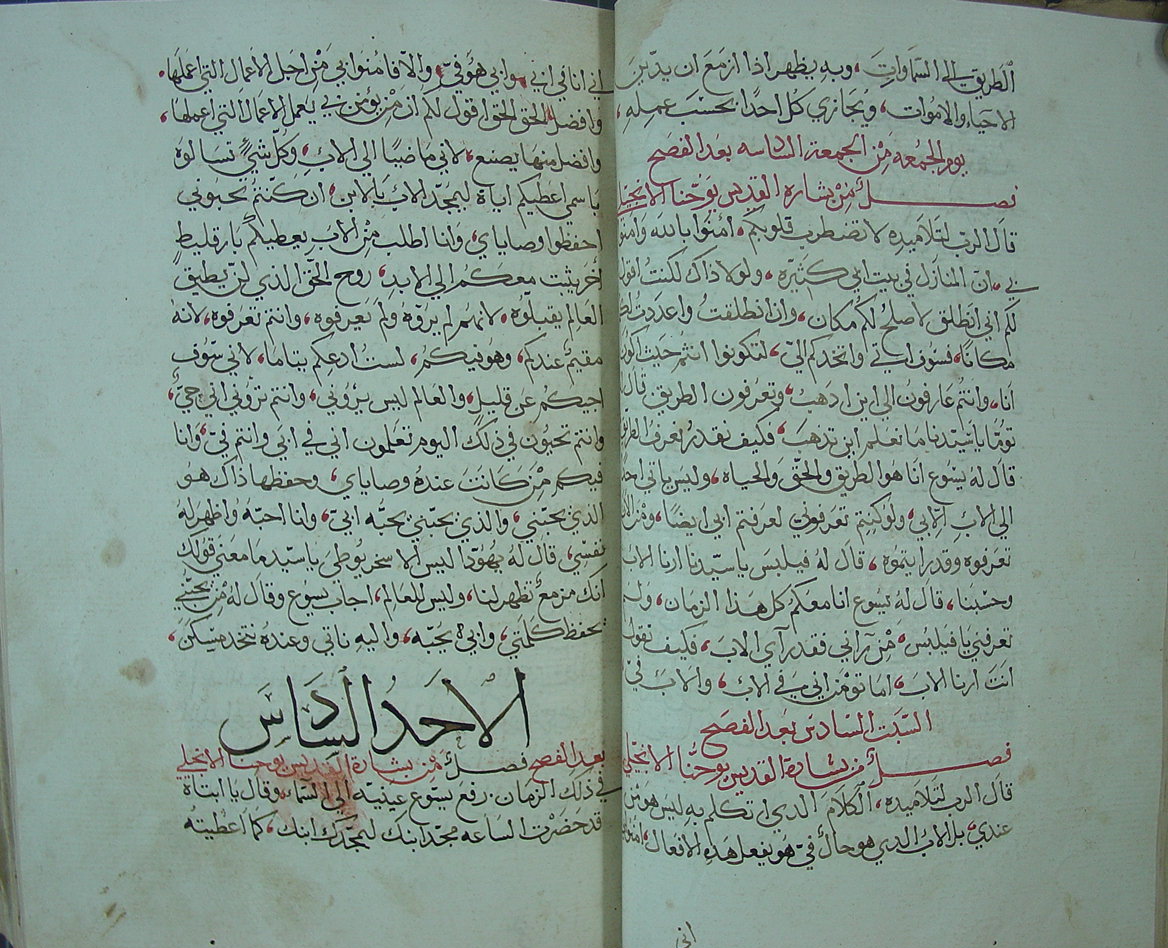 الطريق الى السماوات، وبه يظهر اذا ازمع ان يدين
الاحياء والاموات، ويجازي كل احدًا بحسب عمله،
يوم الجمعه من الجمعة السادسه بعد الفصح
فصل من بشاره القديس يوحنا الانجيلي
قال الرب لتلاميذه لا تضطرب قلوبكم، امنوا بالله وامنوا
بي، ان المنازل في بيت ابي كثيره، ولولا ذاك لكنت اقول
لكم اني انطلق لاصلح لكم مكان، وان انطلقت واعددت لكم
مكانًا، فسوف اتي واتخدكم اليّ، لتكونوا انتم حيت اكون
انا، وانتم عارفون الى اين ادهب، وتعرفون الطريق قال
توما يا سيدنا ما نعلم اين تدهب، فكيف نقدر نعرف الطريق
قال له يسوع انا هو الطريق والحق والحياه، وليس ياتي احد
الى الاب الا بي، ولو كنتم تعرفوني لعرفتم ابي ايضًا، ومن الان
تعرفوه وقد رايتموه، قال له فيلبس يا سيدنا ارنا الاب
وحسبنا، قال له يسوع انا معكم كل هذا الزمان، ولم
تعرفني يا فيلبس، من رآني فقد رآي الاب، فكيف تقول
انت ارنا الاب، اما تومن اني في الاب، والاب فيّ
السبت السادس بعد الفصح
فصل من بشارة القديس يوحنا الانجيلي
قال الرب لتلاميذه، الكلام الدي اتكلم به ليس هو من
عندي، بل الاب الدي هو حال فيّ هو يفعل هذه الافعال، امنوا
اني
اني انا في ابي، وابي هو فيّ، والا فامنوا بي من اجل الاعمال التي اعملها،
وافضل الحق الحق اقول لكم ان من يومن بي يعمل الاعمال التي اعملها،
وافضل منها يصنع، لاني ماضيًا الى الاب، وكل شيءٍ تسالوه
باسمي اعطيكم اياة ليمجد الاب بالابن، ان كنتم تحبوني
احفظوا وصاياي، وانا اطلب من الاب يعطيكم بارقليط
آخر يثبت معكم الى الابد، روح الحق الذي لن يطيق
العالم يقبلوه، لانهم لم يروه ولم يعرفوه، وانتم تعرفوه، لانه
مقيم عندكم، وهو فيكم، لست ادعكم يتاما، لاني سوف
اجيكم عن قليل، والعالم ليس يروني، وانتم تروني اني حيٌ،
وانتم تحيون في ذلك اليوم تعلمون اني في ابي وانتم فيّ، وانا
فيكم من كانت عنده وصاياي، وحفظها ذاك هو
الذي يحبني، والذي يحبني يحبه ابي، وانا احبه واظهر له
نفسي، قال له يهودا ليس الاسخريوطي يا سيد ما معنى قولك
انك مزمع تظهر لنا، وليس للعالم، اجاب يسوع وقال له من يحبني
يحفظ كلمتي، وابي يحبه، واليه ناتي وعنده نتخد مسكن،
الاحد السادس
بعد الفصح فصل من بشارة القديس يوحنا الانجيلي
في ذلك الزمان رفع يسوع عينيه الى السماء وقال يا ابتاه
قد حضرت الساعه مجد ابنك ليمجدك ابنك، كما اعطيته